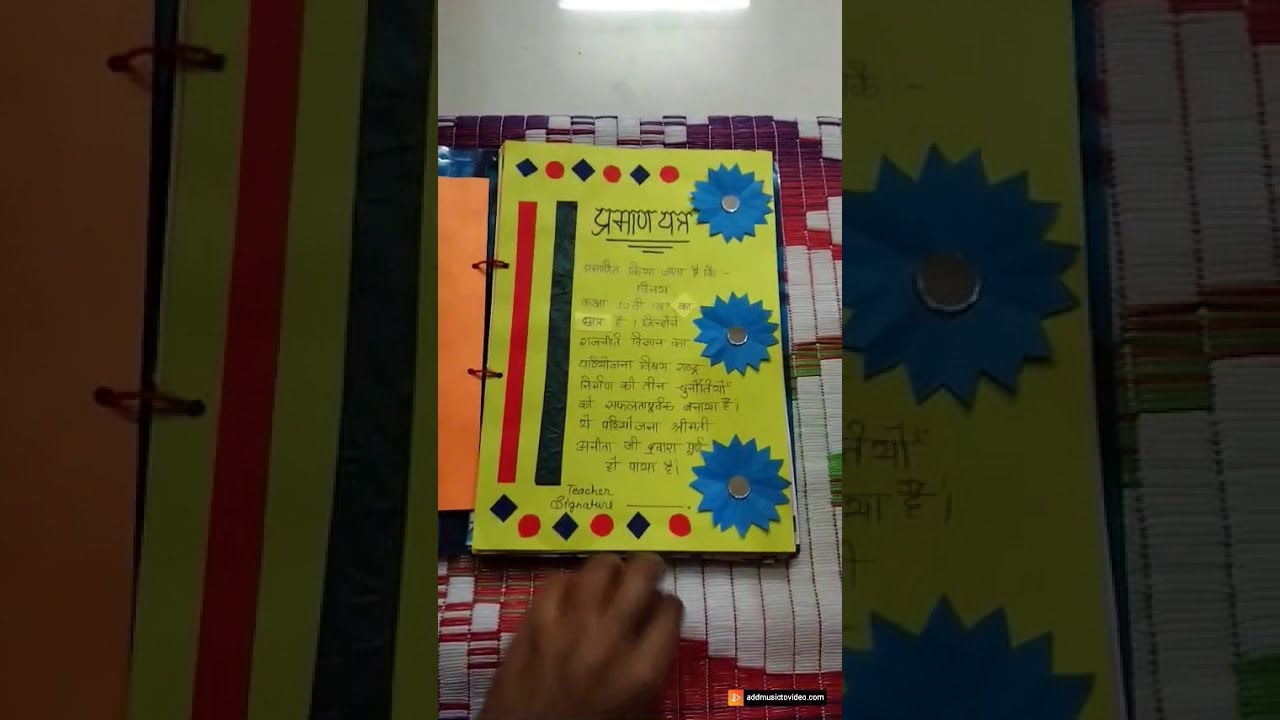 प्रमाण यत्र
प्रमाणित किया जाता है कि -
विनय
कक्षा का
छात्र है । जिन्होने
राजनीति विज्ञान का
परियोजना विषय राष्ट्र
निर्माण की तीन चुनौतियों
को सफलतापूर्वक बनाया है।
ये परियोजना श्रीमती
अनीता जी द्वारा पूर्ण
हो पाया है।
Teacher
Signature
addmusictovideo.com